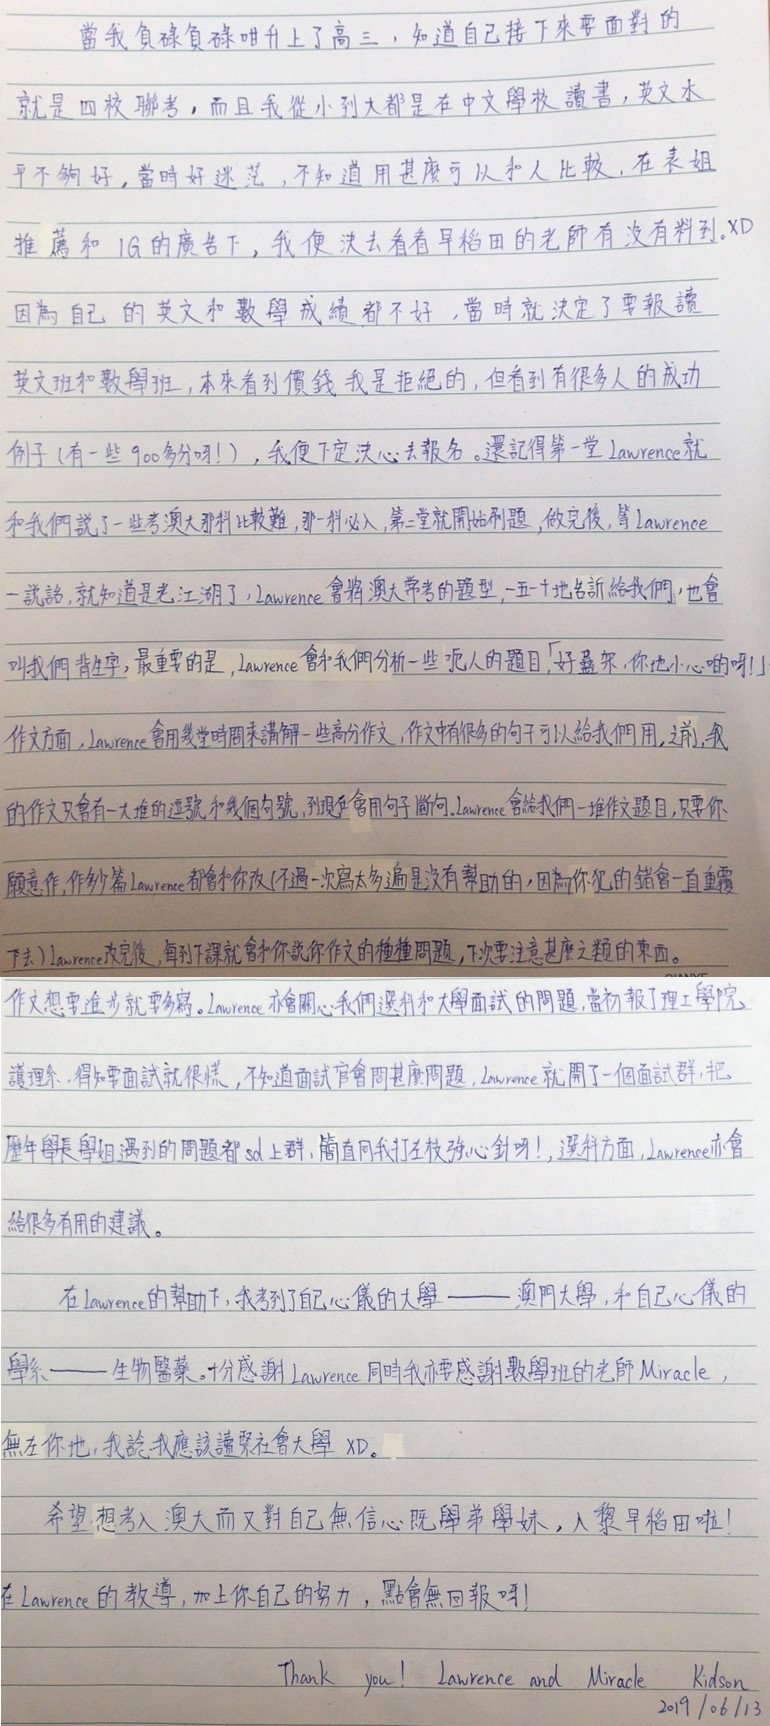 當我負碌負碌咁升上了高三，知道自己接下來要面對的
就是四校聯考，而且我從小到大都是在中文學校讀書，英文水
平不夠好，當時好迷茫，不知道用甚麼可以和人比較，在表姐
推薦和IG的廣告下，我便決去看看早稻田的老師有沒有料到。XD
因為自己的英文和數學成績都不好，當時就決定了要報讀
英文班和數學班，本來看到價錢我是拒絕的，但看到有很多人的成功
例子（有一些900多分呀!），我便下定決心去報名。還記得第一堂Lawrence就
和我們說了一些考澳大那科比較難，那一科必入，第二堂就開始刷題，做完後，等Lawrence
一說話，就知道是老江湖了，Lawrence會將澳大常考的題型，一五一十地告訴給我們，也會
叫我們背生字，最重要的是，Lawrence會和我們分析一些呃人的題目，「好蠱架，你地小心啲呀!」
作文方面，Lawrence會用幾堂時間來講解一些高分作文，作文中有很多的句子可以給我們用，之前，我
的作文只會有一大堆的逗號和幾個句號，到現在會用句子斷句。Lawrence會給我們一堆作文題目，只要你
願意作，作多少篇Lawrence都會和你改（不過一次寫太多遍是沒有幫助的，因為你犯的錯會一直重覆
下去）Lawrence改完後，每到下課就會和你說你作文的種種問題，下次要注意甚麼之類的東西。
作文想要進步就要多寫。Lawrence亦會關心我們選科和大學面試的問題，當初報了理工學院
護理系，得知要面試就很慌，不知道面試官會問甚麼問題，Lawrence就開了一個面試群，把
歷年學長學姐遇到的問題都sd上群，簡直同我打左枝強心針呀!，選科方面，Lawrence亦會
給很多有用的建議。
在Lawrence的幫助下，我考到了自己心儀的大學——澳門大學，和自己心儀的
學系——生物醫藥。十分感謝Lawrence同時我亦要感謝數學班的老師Miracle，
無左你地，我諗我應該讀緊社會大學 XD。
希望想考入澳大而又對自己無信心既學弟學妹，入黎早稻田啦!
在Lawrence的教導，加上你自己的努力，點會無回報呀!
Thank you! Lawrence and Miracle Kidson
2019/06/13